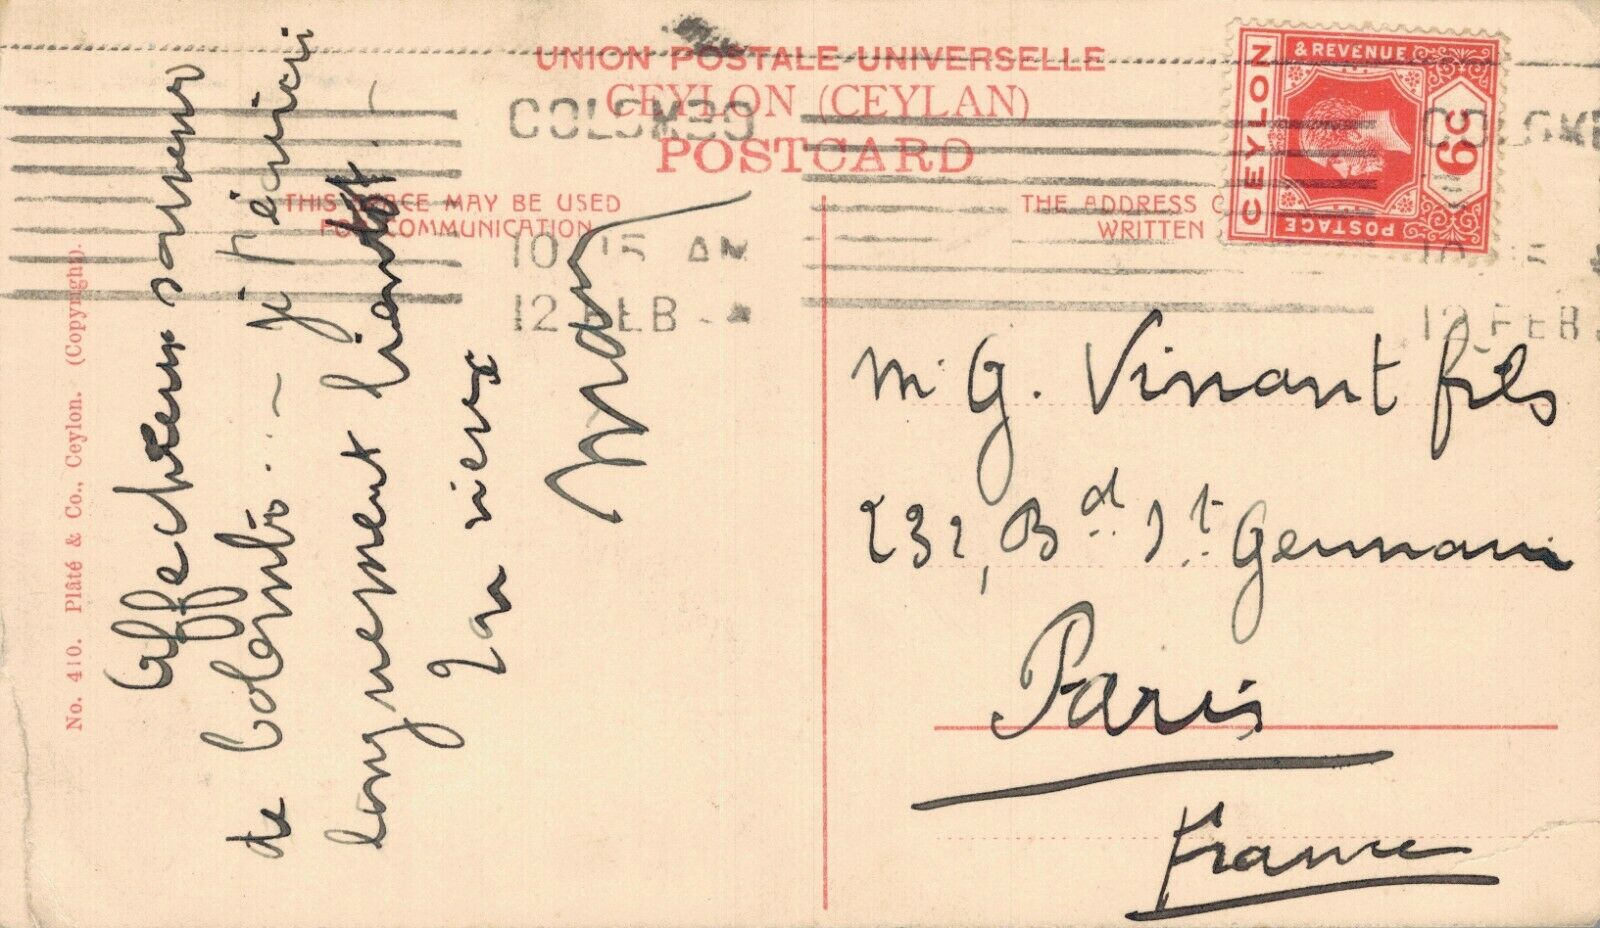 UNION POSTALE UNIVERSELLE
CEYLON (CEYLAN)
POSTCARD
THIS SPACE MAY BE USED
FOR COMMUNICATION
THE ADDRESS
WRITTEN
COLOMBO
10 15 AM
12 FEB
COLOMB
10 15
12 FEB
CEYLON
POSTAGE & REVENUE
6 C
No. 410. Plâté & Co., Ceylon. (Copyright).
Affectueux souvenir
de Colombo... j t'écrirai
longuement bientôt.
Ton vieux
M. G. Vinant fils
232, Bd St. Germain
Paris
France